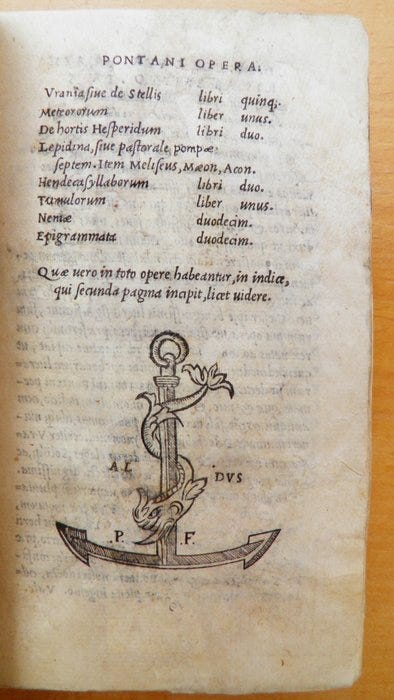 PONTANI OPERA.
Vrania siue de Stellis libri quinq;
Meteororum liber unus.
De hortis Hesperidum libri duo.
Lepidina, siue pastorale, pompæ
septem. Item Meliseus, Mæon, Acon.
Hendecasyllaborum libri duo.
Tumulorum liber unus.
Neniæ duodecim.
Epigrammata duodecim.
Quæ uero in toto opere habeantur, in indice,
qui secunda pagina incipit, licet uidere.
AL DVS
P. F.